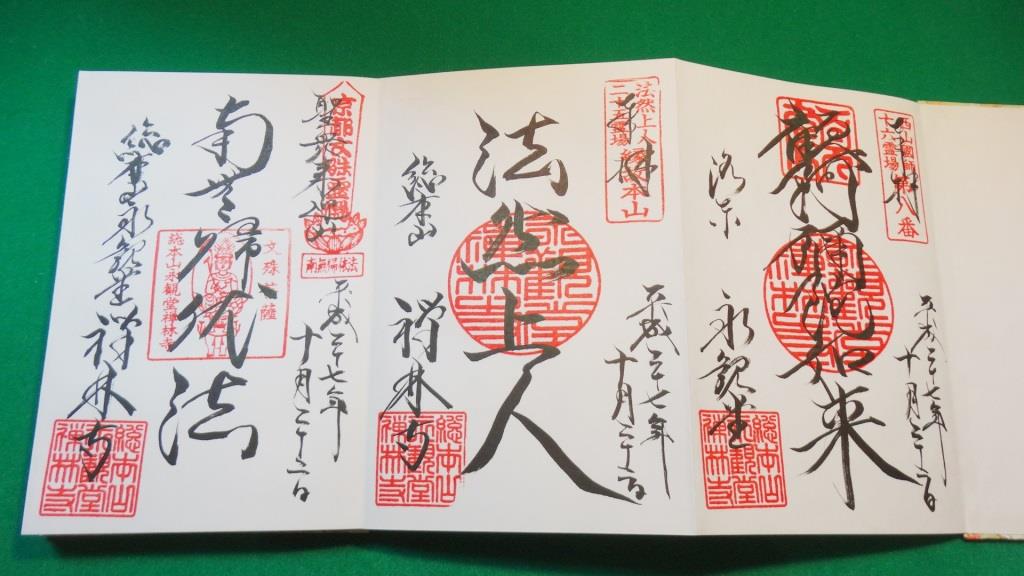 十六霊場 第八番
奉拝
平成二十七年
十月二十二日
如来
洛東 永観堂
総本山永観堂禅林寺
法然上人
二十五霊場
本山
奉拝
平成二十七年
十月二十二日
法然上人
総本山 禅林寺
総本山永観堂禅林寺
京都文殊霊場
平成二十七年
十月二十二日
南無帰依法
文殊菩薩
総本山永観堂禅林寺
総本山永観堂禅林寺
総本山永観堂禅林寺